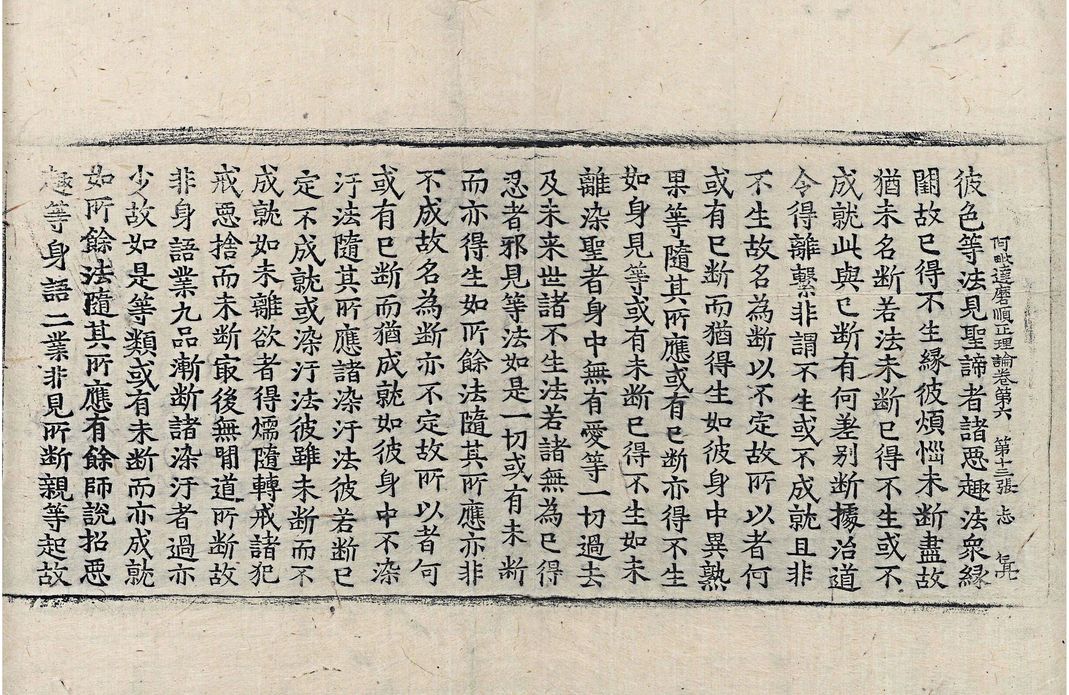 阿毗達磨順正理論卷第六 第十三張 志
彼色等法見聖諦者諸惡趣法衆緣
闕故已得不生緣彼煩惱未斷盡故
猶未名斷若法未斷已得不生或不
成就此與已斷有何差別斷據治道
令得離繫非謂不生或不成就且非
不生故名為斷以不定故所以者何
或有已斷而猶得生如彼身中異熟
果等隨其所應或有已斷亦得不生
如身見等或有未斷已得不生如未
離染聖者身中無有愛等一切過去
及未来世諸不生法若諸無為已得
忍者邪見等法如是一切或有未断
而亦得生如所餘法隨其所應亦非
不成故名為斷亦不定故所以者何
或有已斷而猶成就如彼身中不染
汙法隨其所應諸染汙法彼若斷已
定不成就或染汙法彼雖未斷而不
成就如未離欲者得𤬪隨轉戒諸犯
戒惡捨而未斷㝡後無閒道所斷故
非身語業九品漸斷諸染汙者過亦
少故如是等類或有未断而亦成就
如所餘法隨其所應有餘師說招惡
趣等身語二業非見所斷親等起故